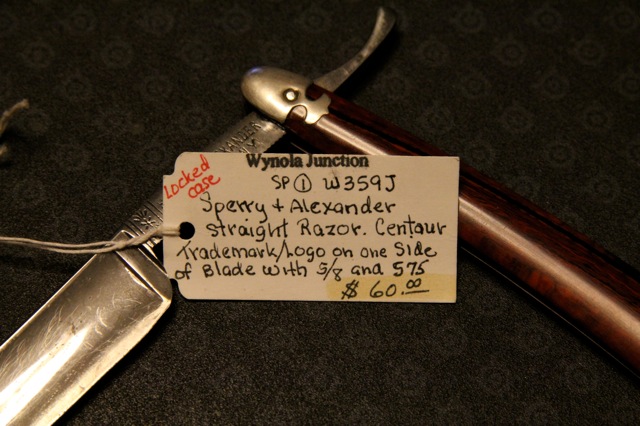 Wynola Junction
Locked
case
SP ① W359J
Sperry + Alexander
Straight Razor. Centaur
Trademark/Logo on one Side
of Blade with 5/8 and 575
$ 60.00